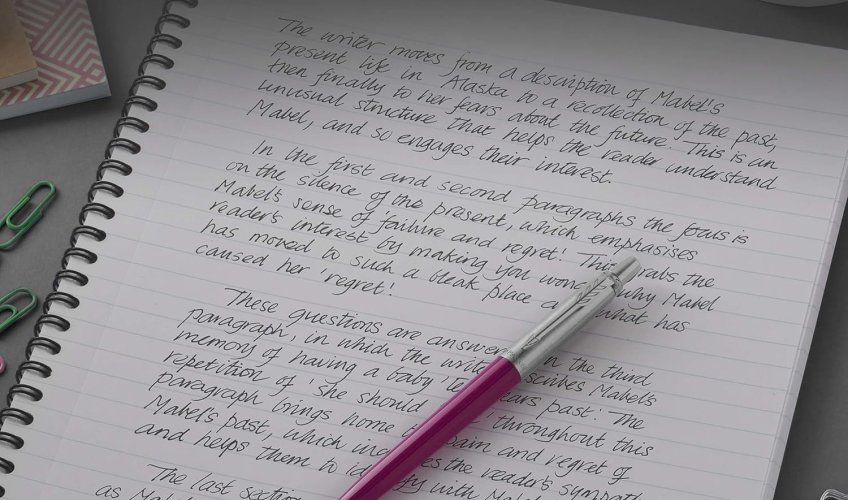 The writer moves from a description of Mabel's
present life in Alaska to a recollection of the past,
then finally to her fears about the future. This is an
unusual structure that helps the reader understand
Mabel, and so engages their interest.
In the first and second paragraphs the focus is
on the silence of the present, which emphasises
Mabel's sense of 'failure and regret'. This grabs the
reader's interest by making you wonder why Mabel
has moved to such a bleak place a what has
caused her 'regret'.
These questions are answered in the third
paragraph, in which the writer describes Mabel's
memory of having a baby 'te years past'. The
repetition of 'she should ' throughout this
paragraph brings home pain and regret of
Mabel's past, which the reader's sympath
and helps them to identify with Mabel
The last section
as